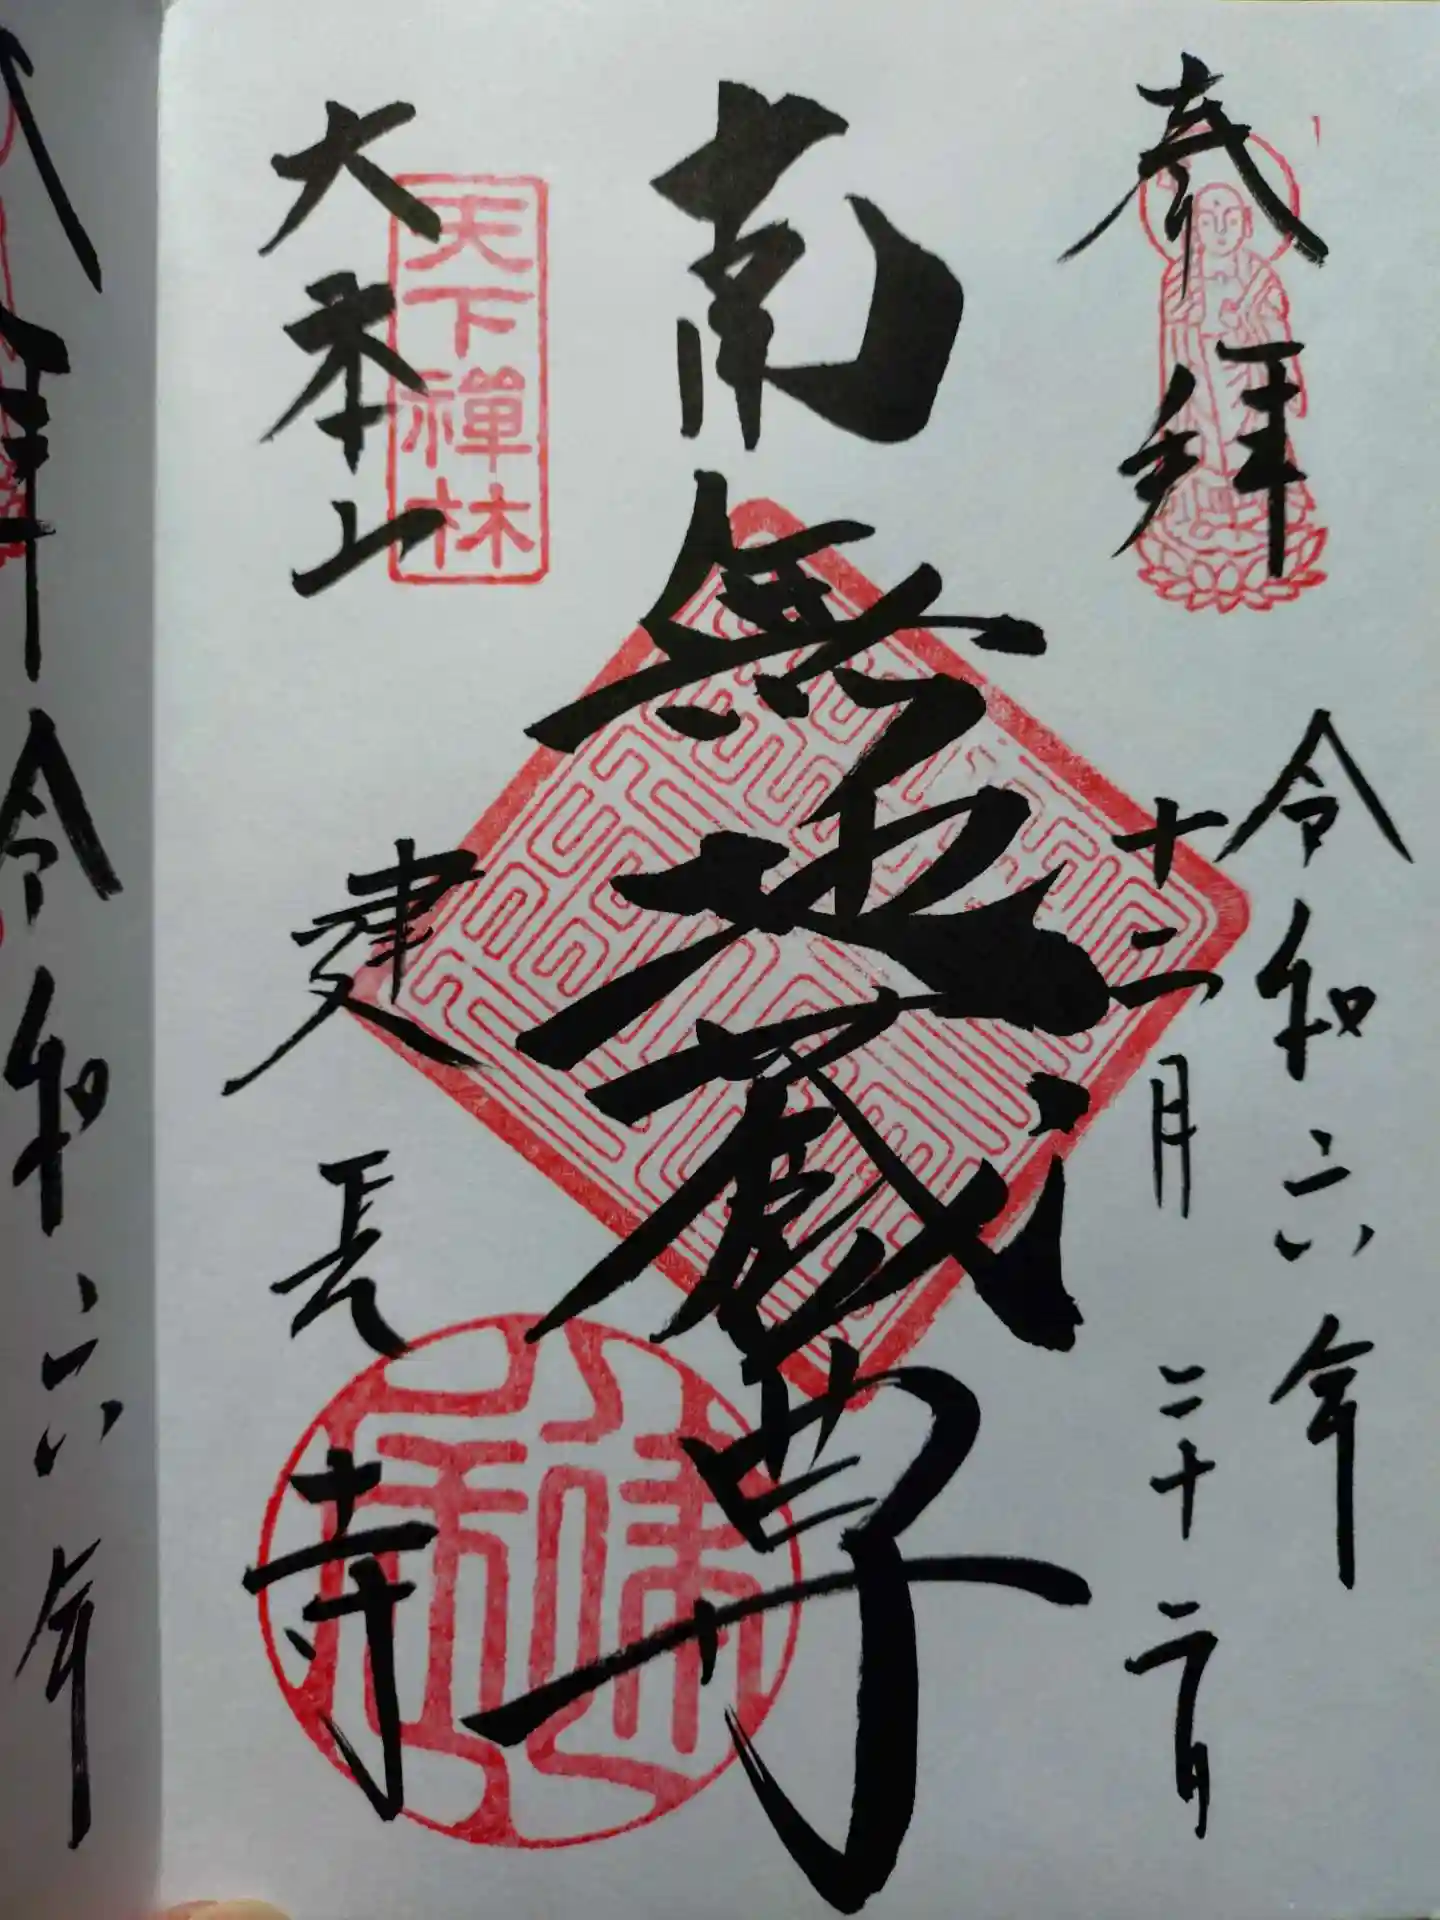 奉拝
令和六年
十二月二十二日
南無地蔵尊
天下禅林
大本山
建長寺
拝
令和六年